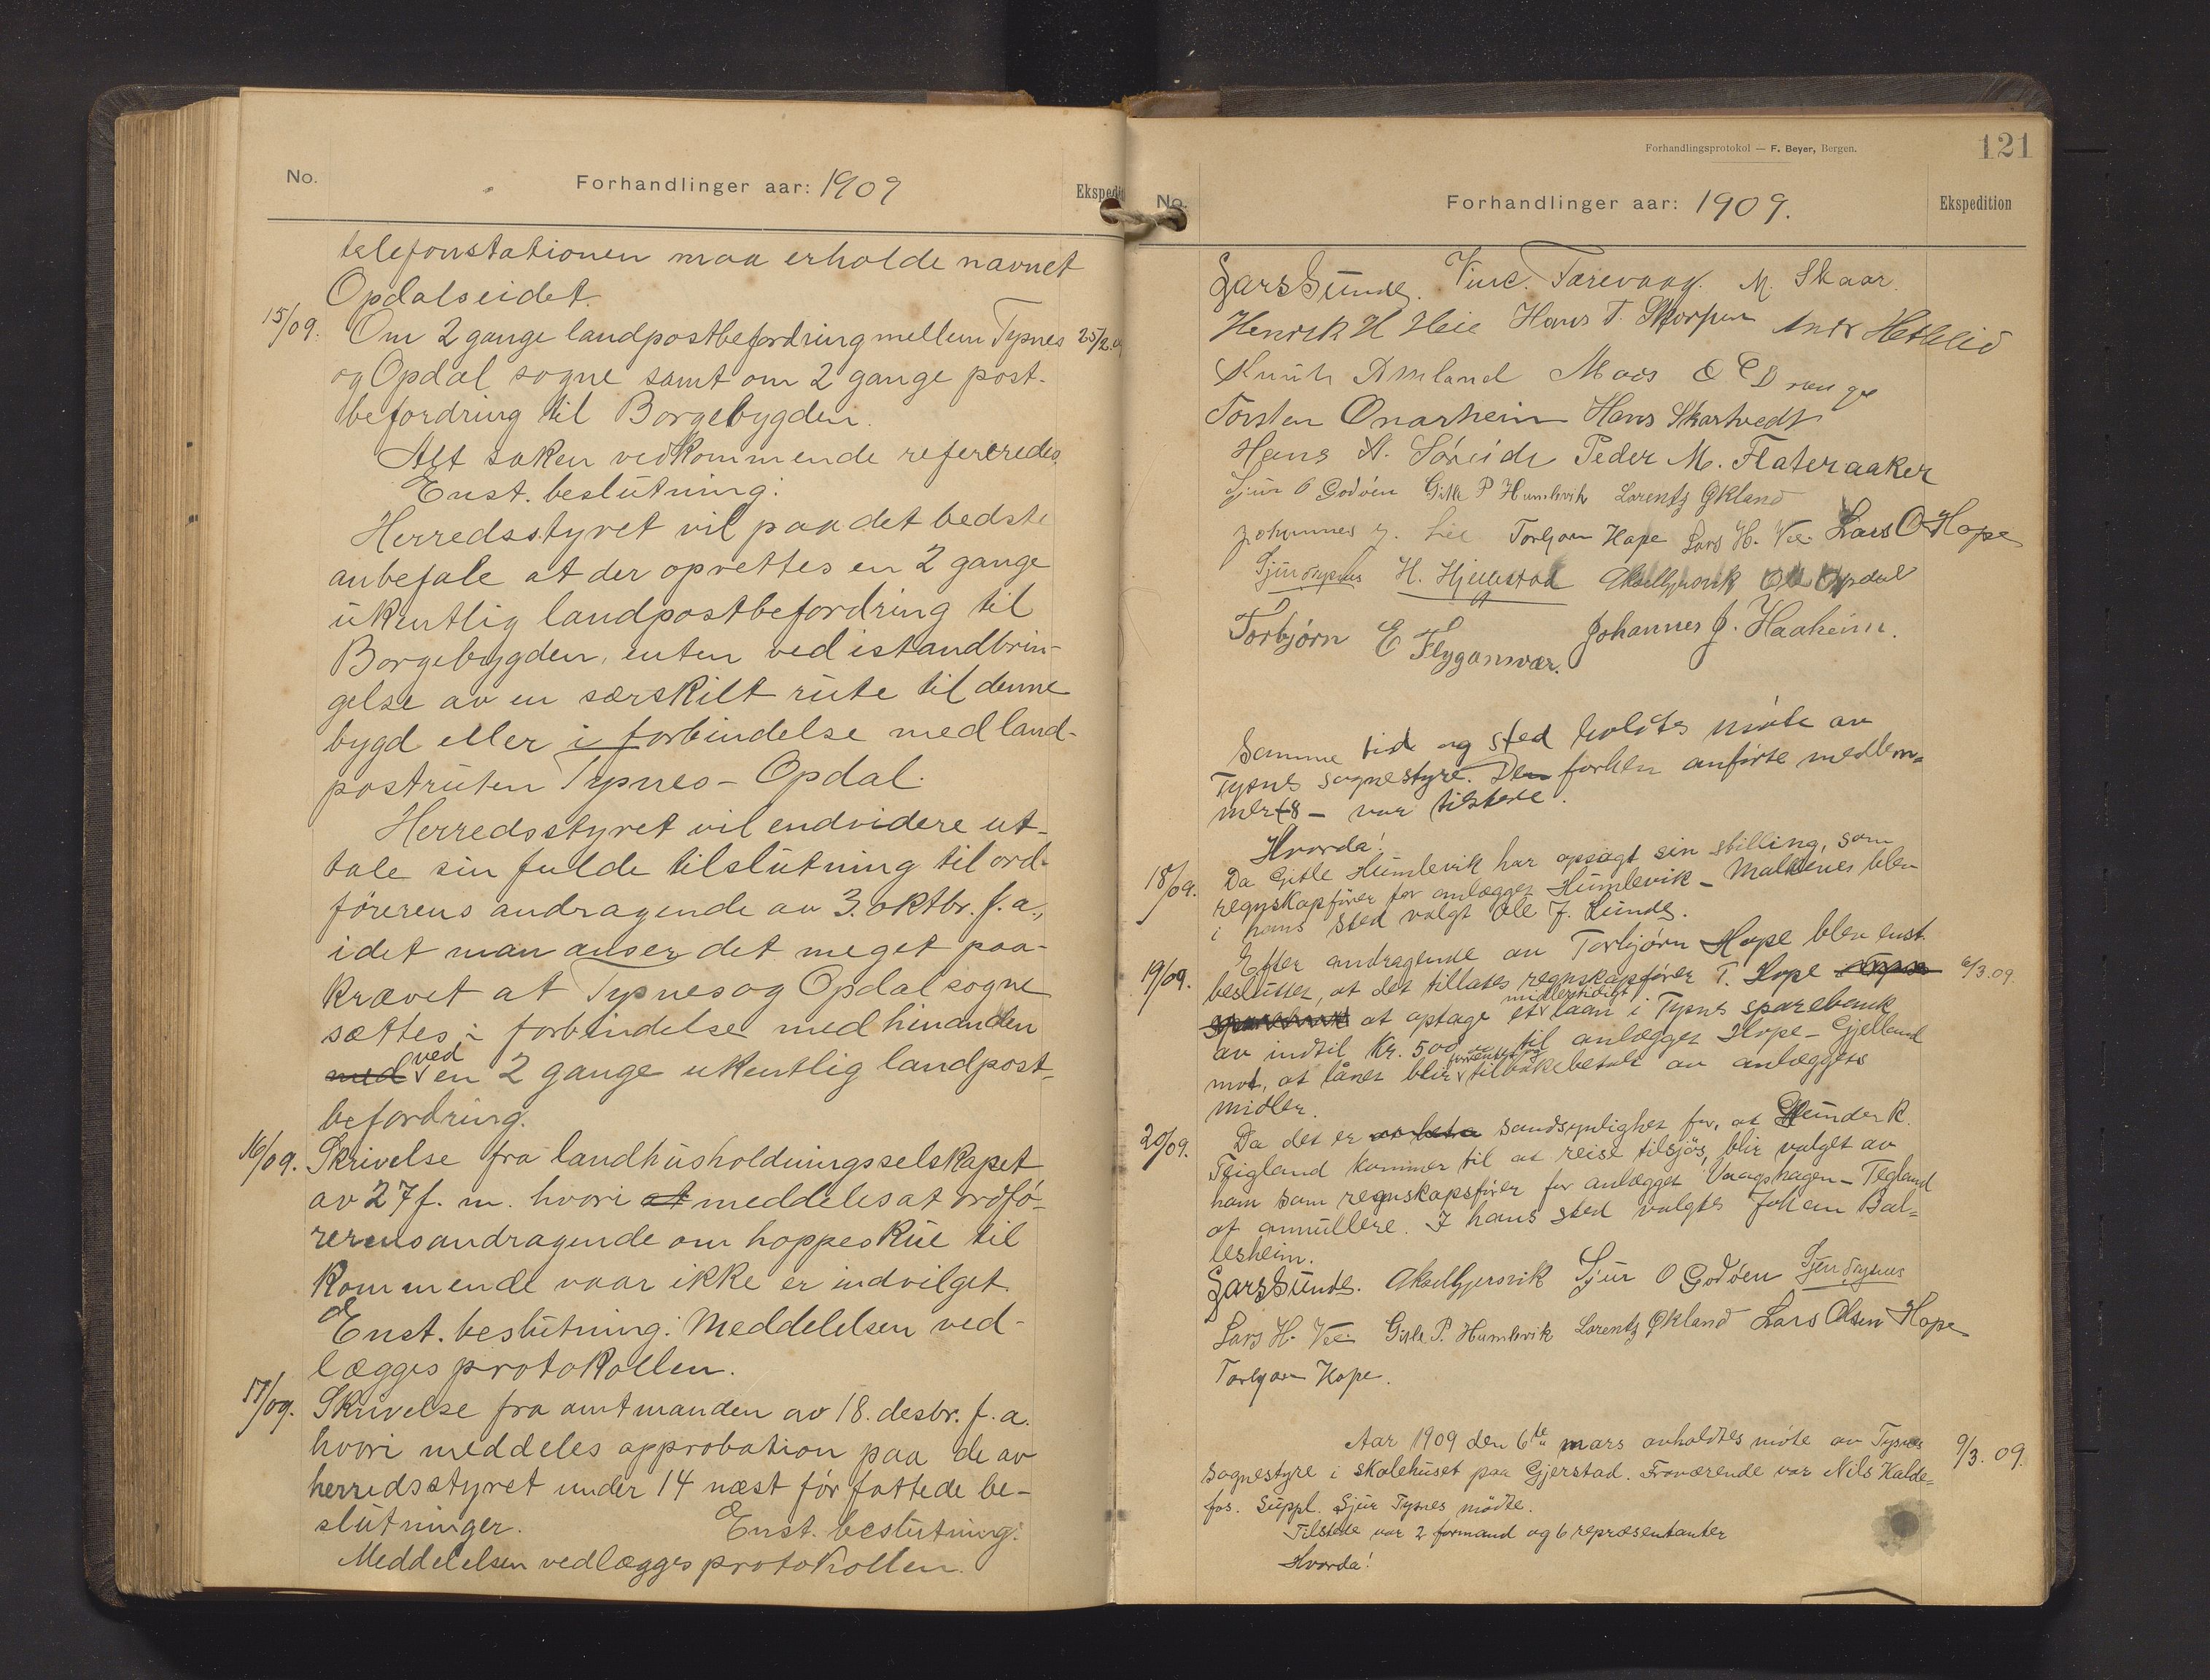 No.
Forhandlinger aar: 1909
Ekspedit
telefonstationen maa erholde navnet
Opdalseidet.
15/09. Om 2 gange landpostbefordring mellem Tysnes 25/2.09
og Opdal sogne samt om 2 gange post-
befordring til Borgebygden.
Alt saken vedkommende refereredes.
Enst. beslutning:
Herredsstyret vil paa det bedste
anbefale at der oprettes en 2 gange
ukentlig landpostbefordring til
Borgebygden, enten ved istandbrin-
gelse av en særskilt rute til denne
bygd eller i forbindelse med land-
postruten Tysnes - Opdal.
Herredsstyret vil endvidere ut-
tale sin fulde tilslutning til ord-
förerens andragende av 3. oktbr. f. a.,
idet man anser det meget paa-
krævet at Tysnes og Opdal sogne
sættes i forbindelse med hinanden
med ved en 2 gange ukentlig landpost-
befordring.
16/09. Skrivelse fra landhusholdningsselskapet
av 27 f. m. hvori at meddeles at ordfö-
rerens andragende om hoppeskue til
kommende vaar ikke er indvilget.
Enst. beslutning: Meddelelsen ved-
lægges protokollen.
17/09. Skrivelse fra amtmanden av 18. desbr. f. a.
hvori meddeles approbation paa de av
herredsstyret under 14 næst för fattede be-
slutninger. Enst. beslutning:
Meddelelsen vedlægges protokollen.
Forhandlingsprotokol — F. Beyer, Bergen.
121
No.
Forhandlinger aar: 1909.
Ekspedition
Lars Sunde. Vinc. Tarevaag. M. Skaar.
Henrik H Heie Hans T. Skorpen Andr Hetlelid
Knut Amland Mons O Drange
Torsten Onarheim Hans Skartvedt
Hans A. Söreide Peder M. Flateraaker
Sjur O Godöen Gitle P Humlevik Lorentz Økland
Johannes J. Lie Torbjørn Hope Lars H. Vee. Lars O Hope
Sjur Tysnes H. Hjellestad Aksel Gjersvik Ole Opdal
Torbjörn E Flygansvær. Johannes J. Haaheim.
Samme tid og sted holdtes möte av
Tysnes sognestyre. De forhen anförte medlem-
mer - 8 - var tilstede.
Hvorda!
18/09. Da Gitle Humlevik har opsagt sin stilling, som
regnskapförer for anlægget Humlevik - Malkenes blev
i hans sted valgt Ole J. Sunde.
19/09. Efter andragende av Torbjörn Hope blev enst.
besluttet, at det tillates regnskapförer T. Hope i Tysnes 6/3.09.
sparebank at optage et midlertidigt laan i Tysnes sparebank
av indtil Kr. 500 til anlægget Hope - Gjelland
mot, at lånet blir forrentet og tilbakebetalt av anlæggets
midler.
20/09. Da det er sandsynlighet for, at Gunder K.
Teigland kommer til at reise tilsjös, blir valget av
ham som regnskapsförer for anlægget Vaagshagen - Tegland
at annullere. I hans sted valgtes Johan Bal-
lesheim.
Lars Sunde. Aksel Gjersvik Sjur O Godöen Sjur Tysnes
Lars H. Vee. Gitle P. Humlevik Lorentz Økland Lars Olsen Hope
Torbjørn Hope.
Aar 1909 den 6te mars avholdtes möte av Tysnes 9/3. 09.
sognestyre i skolehuset paa Gjerstad. Fraværende var Nils Kalde-
fos. Suppl. Sjur Tysnes mödte.
Tilstede var 2 formænd og 6 repræsentanter
Hvorda!